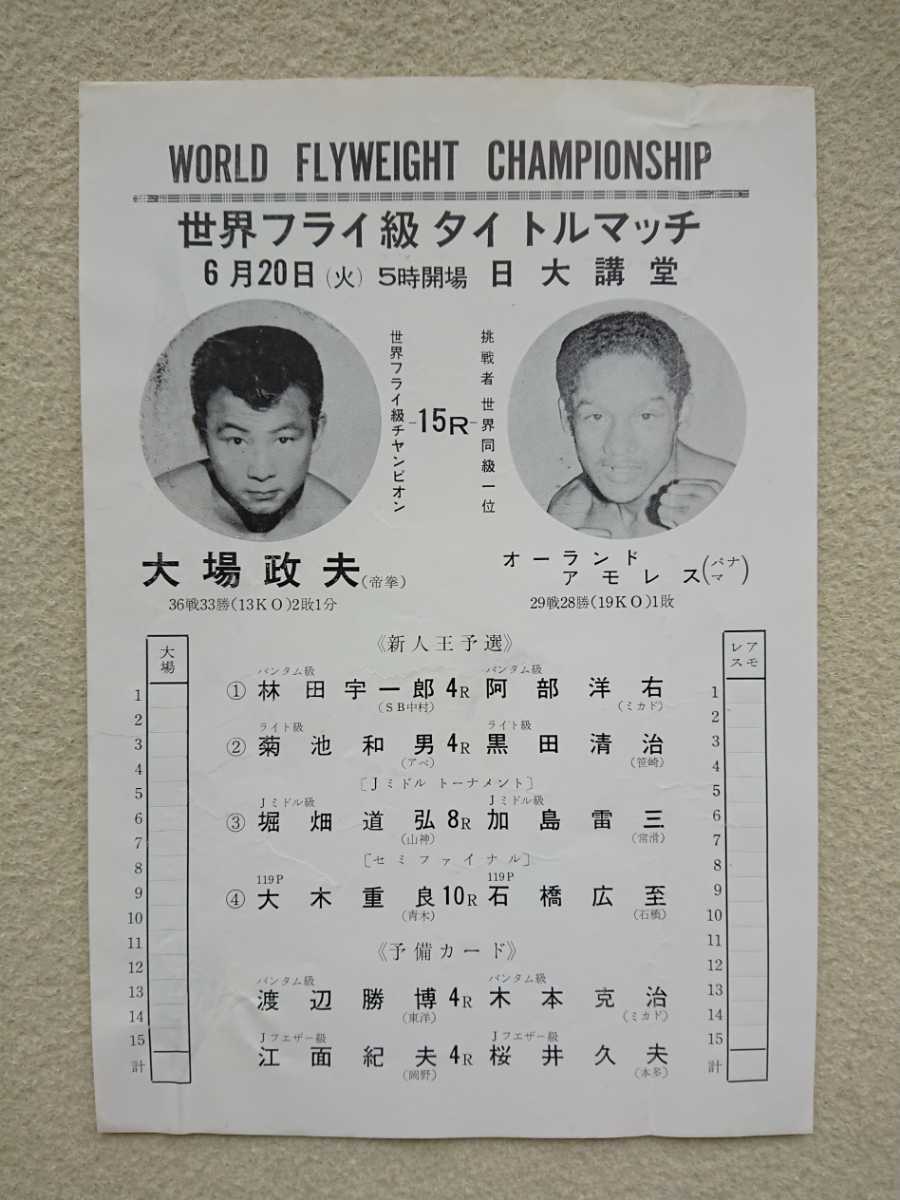 WORLD FLYWEIGHT CHAMPIONSHIP
世界フライ級タイトルマッチ
6月20日(火) 5時開場 日大講堂
世界フライ級チャンピオン
-15R-
挑戦者 世界同級一位
大場政夫(帝拳)
36戦33勝(13KO)2敗1分
オーランド
アモレス(パナマ)
29戦28勝(19KO)1敗
大場
1
2
3
4
5
6
7
8
9
10
11
12
13
14
15
計
《新人王予選》
バンタム級 バンタム級
① 林田宇一郎 4R 阿部洋右
(SB中村) (ミカド)
ライト級 ライト級
② 菊池和男 4R 黒田清治
(アベ) (笹崎)
[Jミドル トーナメント]
Jミドル級 Jミドル級
③ 堀畑道弘 8R 加島雷三
(山神) (常滑)
[セミファイナル]
119P 119P
④ 大木重良 10R 石橋広至
(青木) (石橋)
《予備カード》
バンタム級 バンタム級
渡辺勝博 4R 木本克治
(東洋) (ミカド)
Jフェザー級 Jフェザー級
江面紀夫 4R 桜井久夫
(岡野) (本多)
アモレス
1
2
3
4
5
6
7
8
9
10
11
12
13
14
15
計